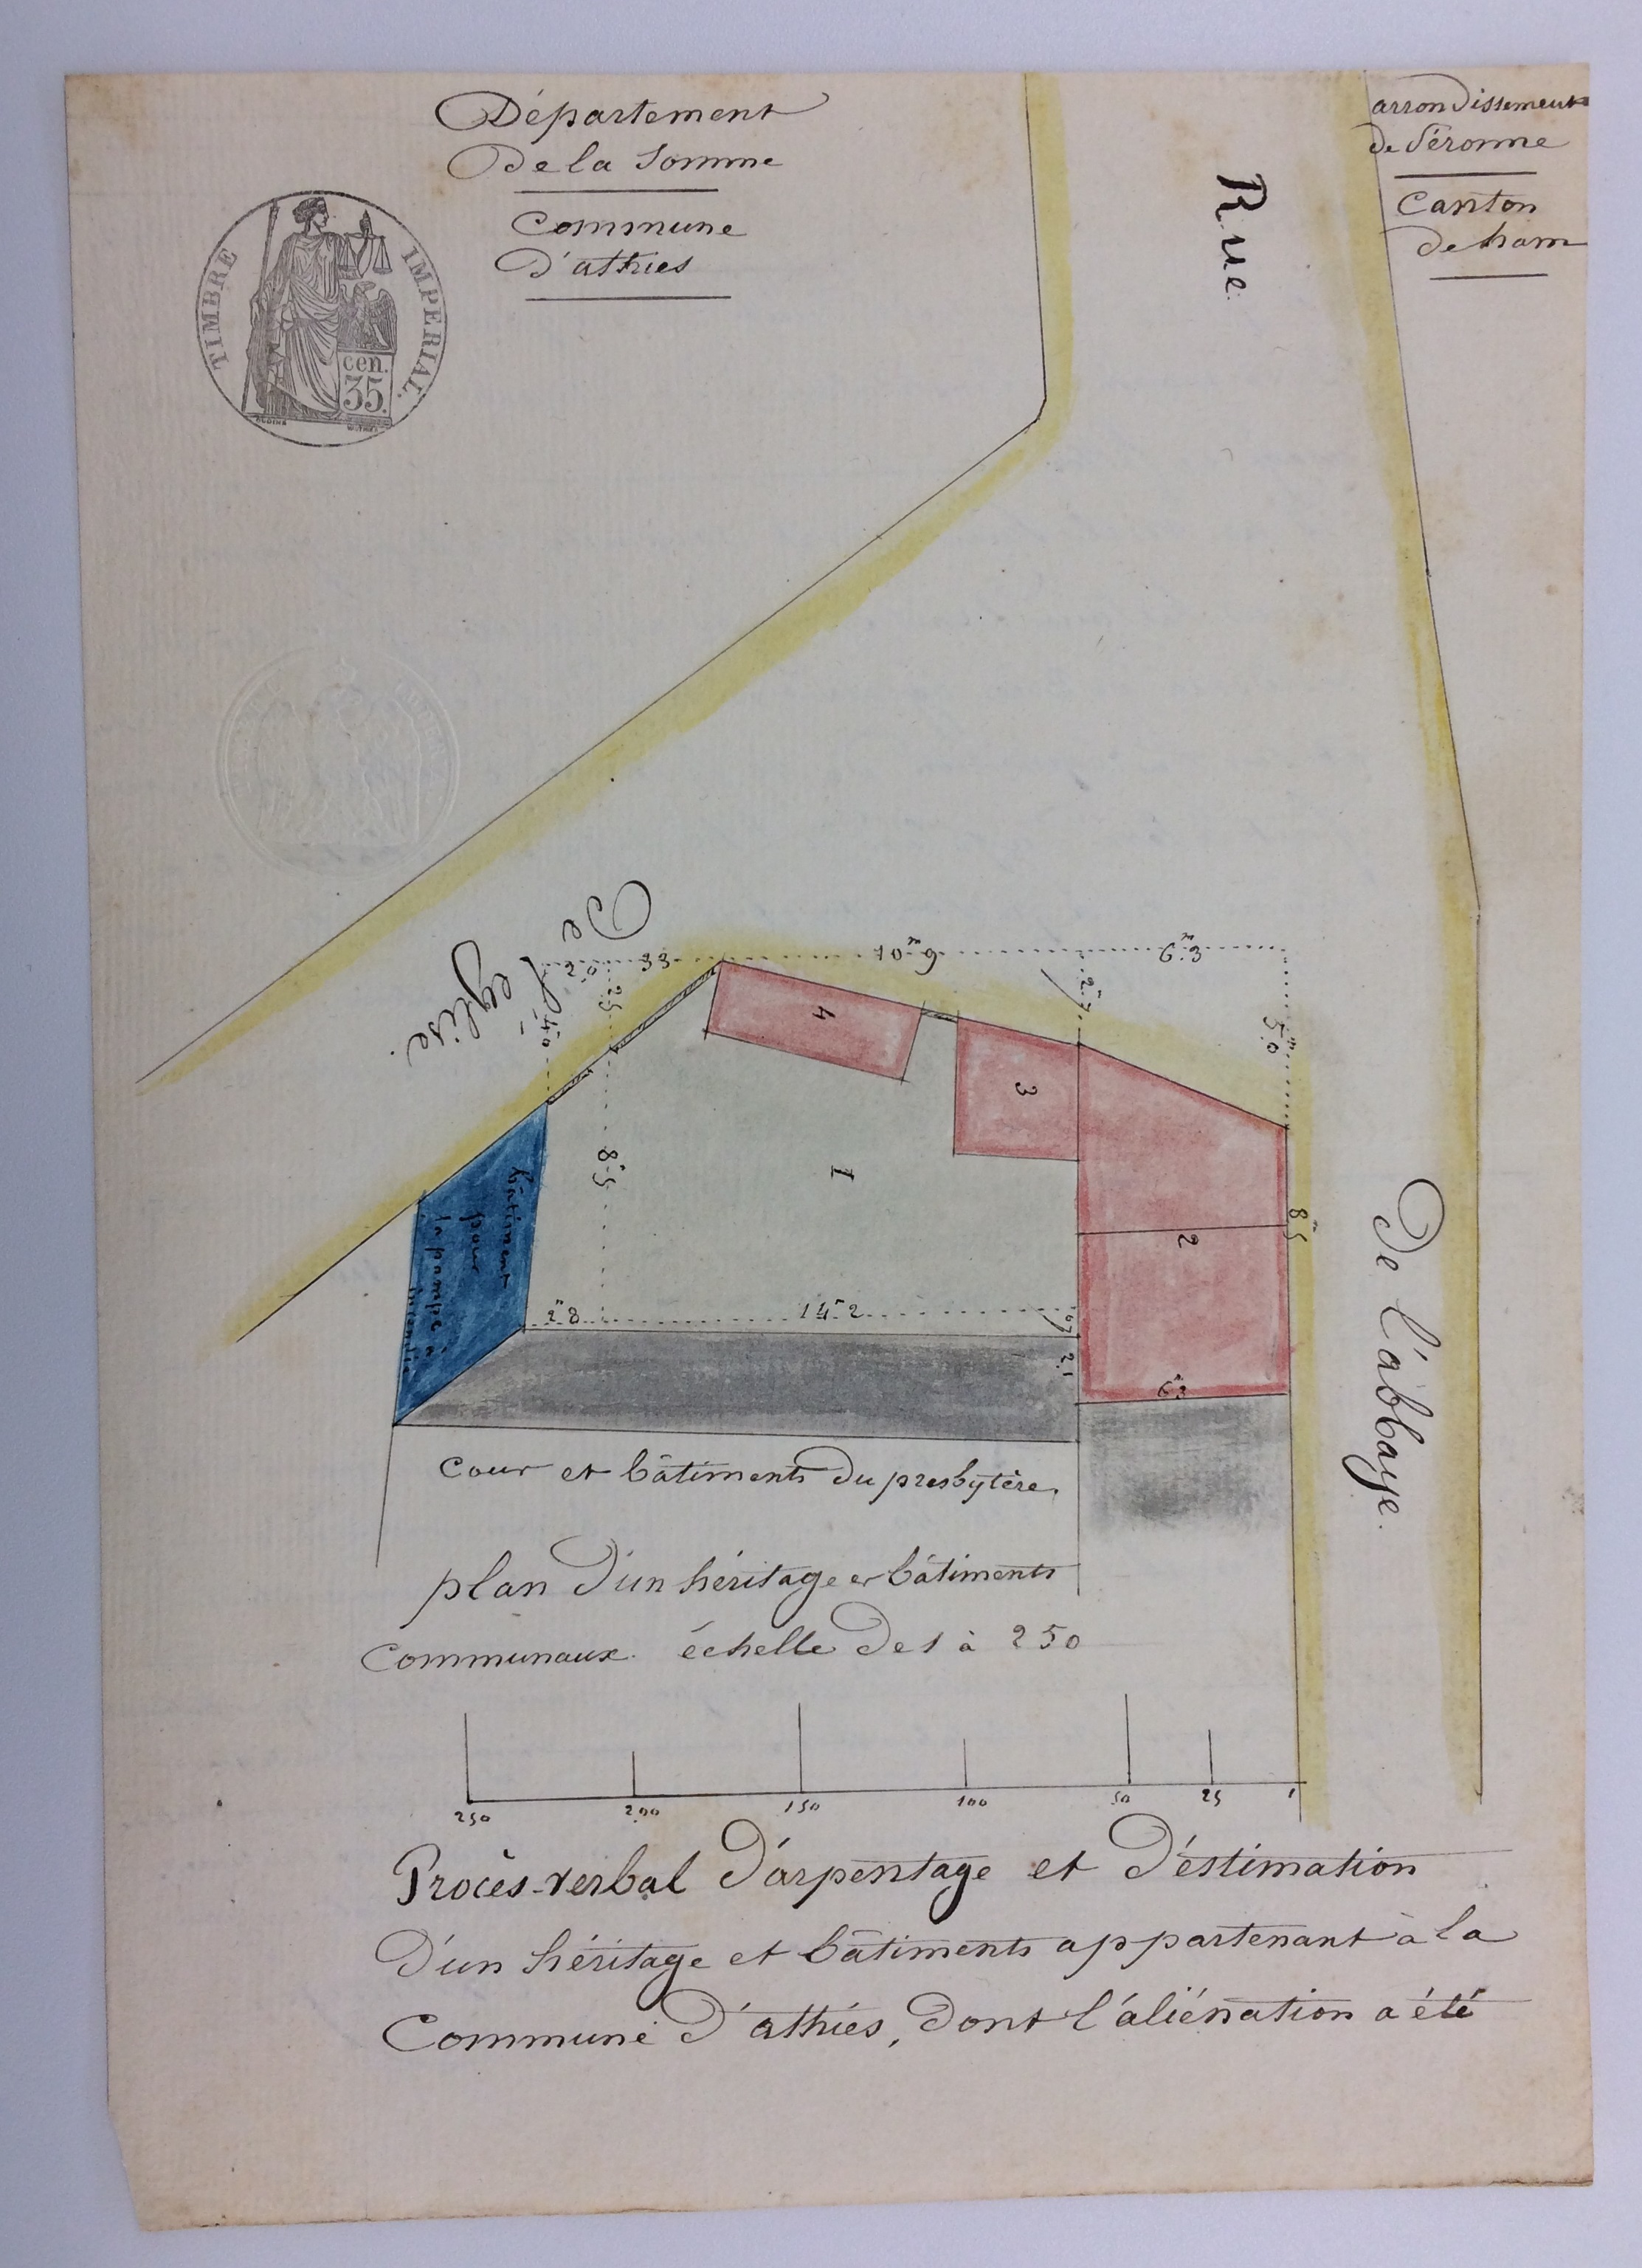 Département
De la Somme
Commune
D'athies
arrondissement
de Péronne
Canton
de ham
TIMBRE IMPERIAL.
cen.
35.
Rue
De l'église.
De l'abbaye.
10m 9
6m 3
2m 7
5m 0
3 3
2 0
2 5
4 0
4
3
1
2
8m 5
8m 5
bâtiment
pour
la pompe à
incendie
2m 8
14m 2
2 1
6m 3
Cour et bâtiments du presbytère.
plan d'un héritage et bâtiments
Communaux. échelle de 1 à 250
250 200 150 100 50 25 1
Procès-verbal d'arpentage et d'éstimation
D'un héritage et bâtiments appartenant à la
Commune d'athiés, dont l'aliénation a été